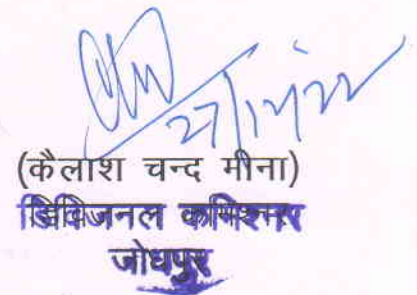 27/12/22
(कैलाश चन्द मीना)
डिविजनल कमिश्नर
जोधपुर